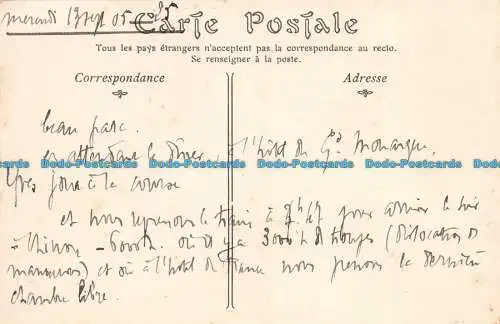 mercredi 13 sept 05
Carte Postale
Tous les pays étrangers n'acceptent pas la correspondance au recto.
Se renseigner à la poste.
Correspondance
Adresse
beau parc.
en attendant le dîner à l'hôtel du Gd Monarque.
Dodo-Postcards Dodo-Postcards Dodo-Postcards Dodo-Postcards Dodo-Postcards Dodo-Postcards
Yves joue à la course
et nous reprenons le train à 7h47 pour arriver le soir
à Chinon - 6000h. où il y a 3000 h de troupes (dislocation de
manœuvres) et où à l'hôtel de France nous prenons la dernière
chambre libre.